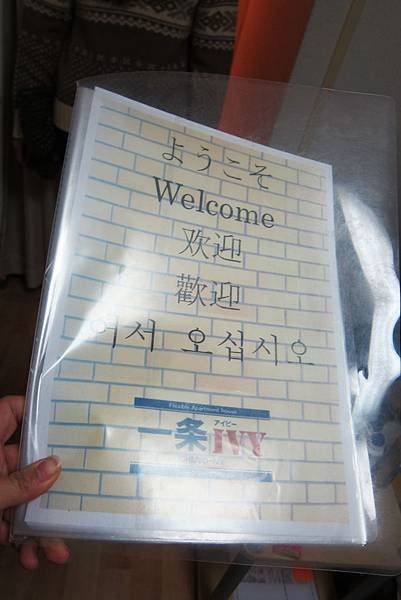 ようこそ
Welcome
欢迎
歡迎
어서 오십시오
Flexible Apartment house
アイビー
一条IVY